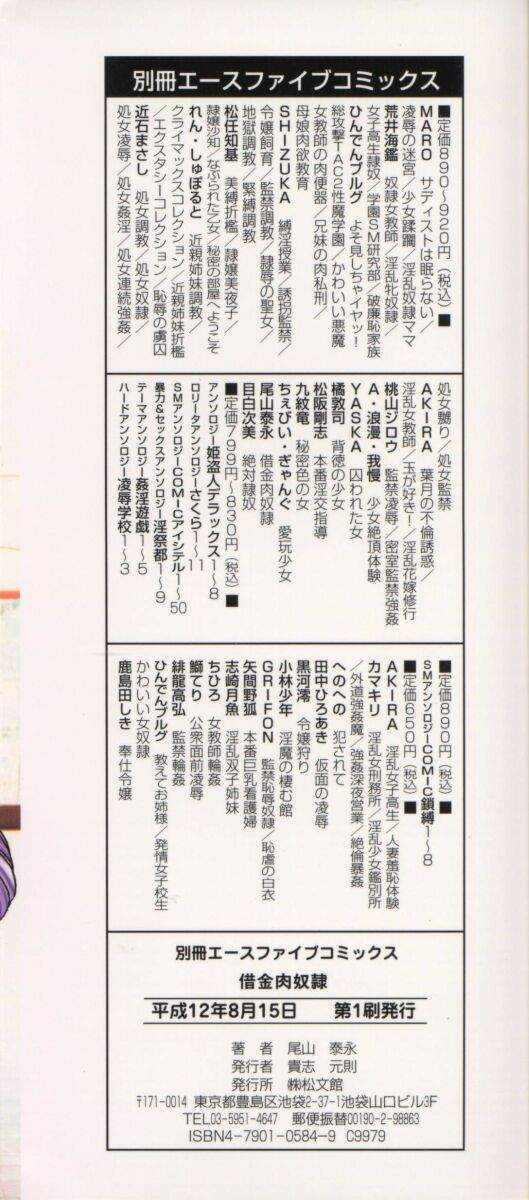 別冊エースファイブコミックス
■定価890〜920円（税込）■
MARO サディストは眠らない／
凌辱の迷宮／少女蹂躙／淫乱奴隷ママ
荒井海鑑 奴隷女教師／淫乱牝奴隷／
女子高生隷奴／学園SM研究部／破廉恥家族
ひんでんブルグ よそ見しちゃイヤッ！
総攻撃TAC2性魔学園／かわいい悪魔
女教師の肉便器／兄妹の肉私刑／
母娘肉欲教育
SHIZUKA 縛淫授業／誘拐監禁／
令嬢飼育／監禁調教／隷辱の聖女／
地獄調教／緊縛調教
松任知基 美縛折檻／隷嬢美夜子／
隷嬢沙知／なぶられた乙女／秘密の部屋へようこそ
れん・しゅぽると 近親姉妹調教／
クライマックスコレクション／近親姉妹折檻
／エクスタシーコレクション／恥辱の虜囚
近石まさし 処女調教／処女奴隷／
処女凌辱／処女姦淫／処女連続強姦／
処女嬲り／処女監禁
AKIRA 葉月の不倫誘惑／
淫乱女教師／玉が好き！／淫乱花嫁修行
桃山ジロウ 監禁凌辱／密室監禁強姦
A・浪漫・我慢 少女絶頂体験
YASKA 囚われた女
橘敦司 背徳の少女
松阪剛志 本番淫交指導
九紋竜 秘密色の女
ちぇびい・ぎゃんぐ 愛玩少女
尾山泰永 借金肉奴隷
目白次美 絶対隷奴
■定価799円〜830円（税込）■
アンソロジー姫盗人デラックス1〜8
ロリータアンソロジーさくら1〜11
SMアンソロジーCOMICアイシテル1〜50
暴力&セックスアンソロジー淫祭都1〜9
テーマアンソロジー姦淫遊戯1〜5
ハードアンソロジー凌辱学校1〜3
■定価890円（税込）■
SMアンソロジーCOMIC鎖縛1〜8
■定価650円（税込）■
AKIRA 淫乱女子高生／人妻羞恥体験
カマキリ 淫乱女刑務所／淫乱少女鑑別所
／外道強姦魔／強姦深夜営業／絶倫暴姦
へのへの 犯されて
田中ひろあき 仮面の凌辱
黒河澪 令嬢狩り
小林少年 淫魔の棲む館
GRIFON 監禁恥辱奴隷／恥虐の白衣
矢間野狐 本番巨乳看護婦
志崎月魚 淫乱双子姉妹
ちひろ 女教師輪姦
鰤てり 公衆面前凌辱
緋龍高弘 監禁輪姦
ひんでんブルグ 教えてお姉様／発情女子校生
かわいい女奴隷
鹿島田しき 奉仕令嬢
別冊エースファイブコミックス
借金肉奴隷
平成12年8月15日 第1刷発行
著者 尾山 泰永
発行者 貴志 元則
発行所 ㈱松文館
〒171-0014 東京都豊島区池袋2-37-1池袋山口ビル3F
TEL03-5951-4647 郵便振替00190-2-98863
ISBN4-7901-0584-9 C9979